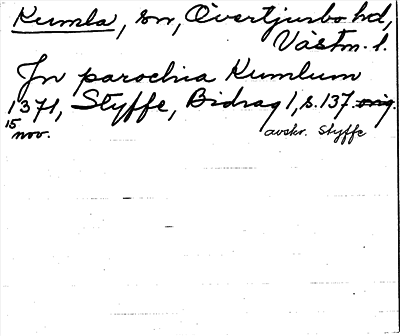 Kumla, sn, Övertjurbo hd,
Västm. l.
In parochia Kumlum
1371, Styffe, Bidrag 1, s. 137. orig.
15 nov. avskr. Styffe